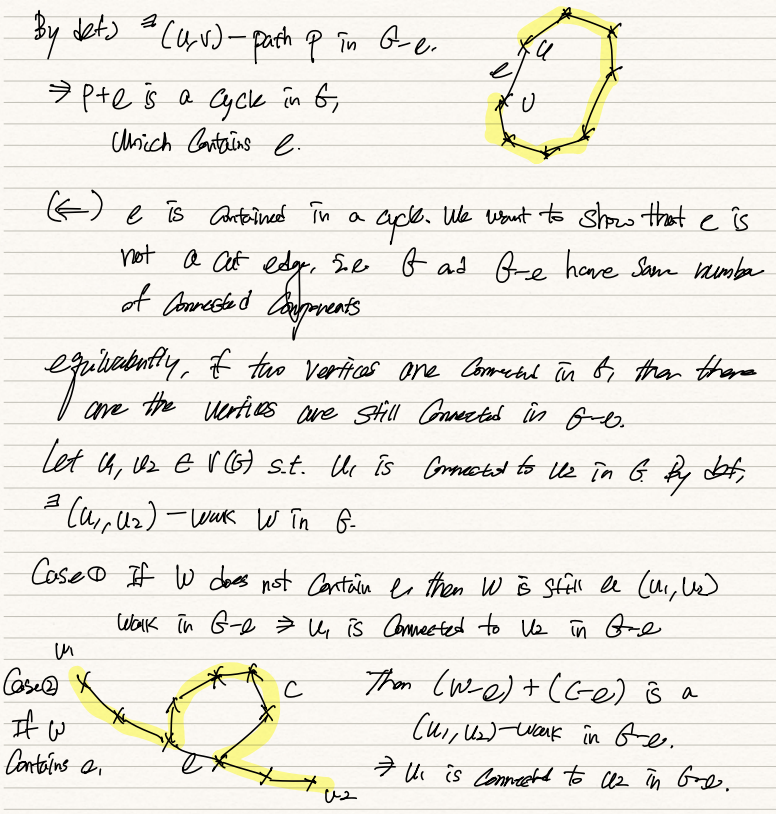 By def, ∃ (u,v)-path P in G-e.
⇒ P+e is a cycle in G,
which contains e.
e
u
v
(⇐) e is contained in a cycle. We want to show that e is
not a cut edge, i.e. G and G-e have same number
of connected components
equivalently, if two vertices are connected in G, then there
are the vertices are still connected in G-e.
Let u1, u2 ∈ V(G) s.t. u1 is connected to u2 in G. By def,
∃ (u1, u2)-walk W in G.
Case① If W does not contain e, then W is still a (u1, u2)
walk in G-e ⇒ u1 is connected to u2 in G-e
u1
Case②
If W
contains e,
e
C
u2
Then (W-e) + (C-e) is a
(u1, u2)-walk in G-e.
⇒ u1 is connected to u2 in G-e.